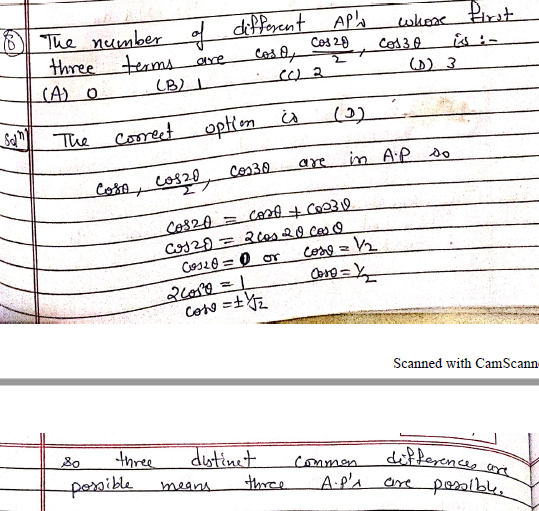 8 The number of different AP's whose first
three terms are cosθ, cos2θ/2, cos3θ is :-
(A) 0 (B) 1 (C) 2 (D) 3
Solⁿ The correct option is (D)
cosθ, cos2θ/2, cos3θ are in A.P so
cos2θ = cosθ + cos3θ
cos2θ = 2cos2θ cosθ
cos2θ = 0 or cosθ = 1/2
2cos²θ = 1 cosθ = 1/2
cosθ = ±1/√2
Scanned with CamScann
so three distinct common differences are
possible means three A.P's are possible.